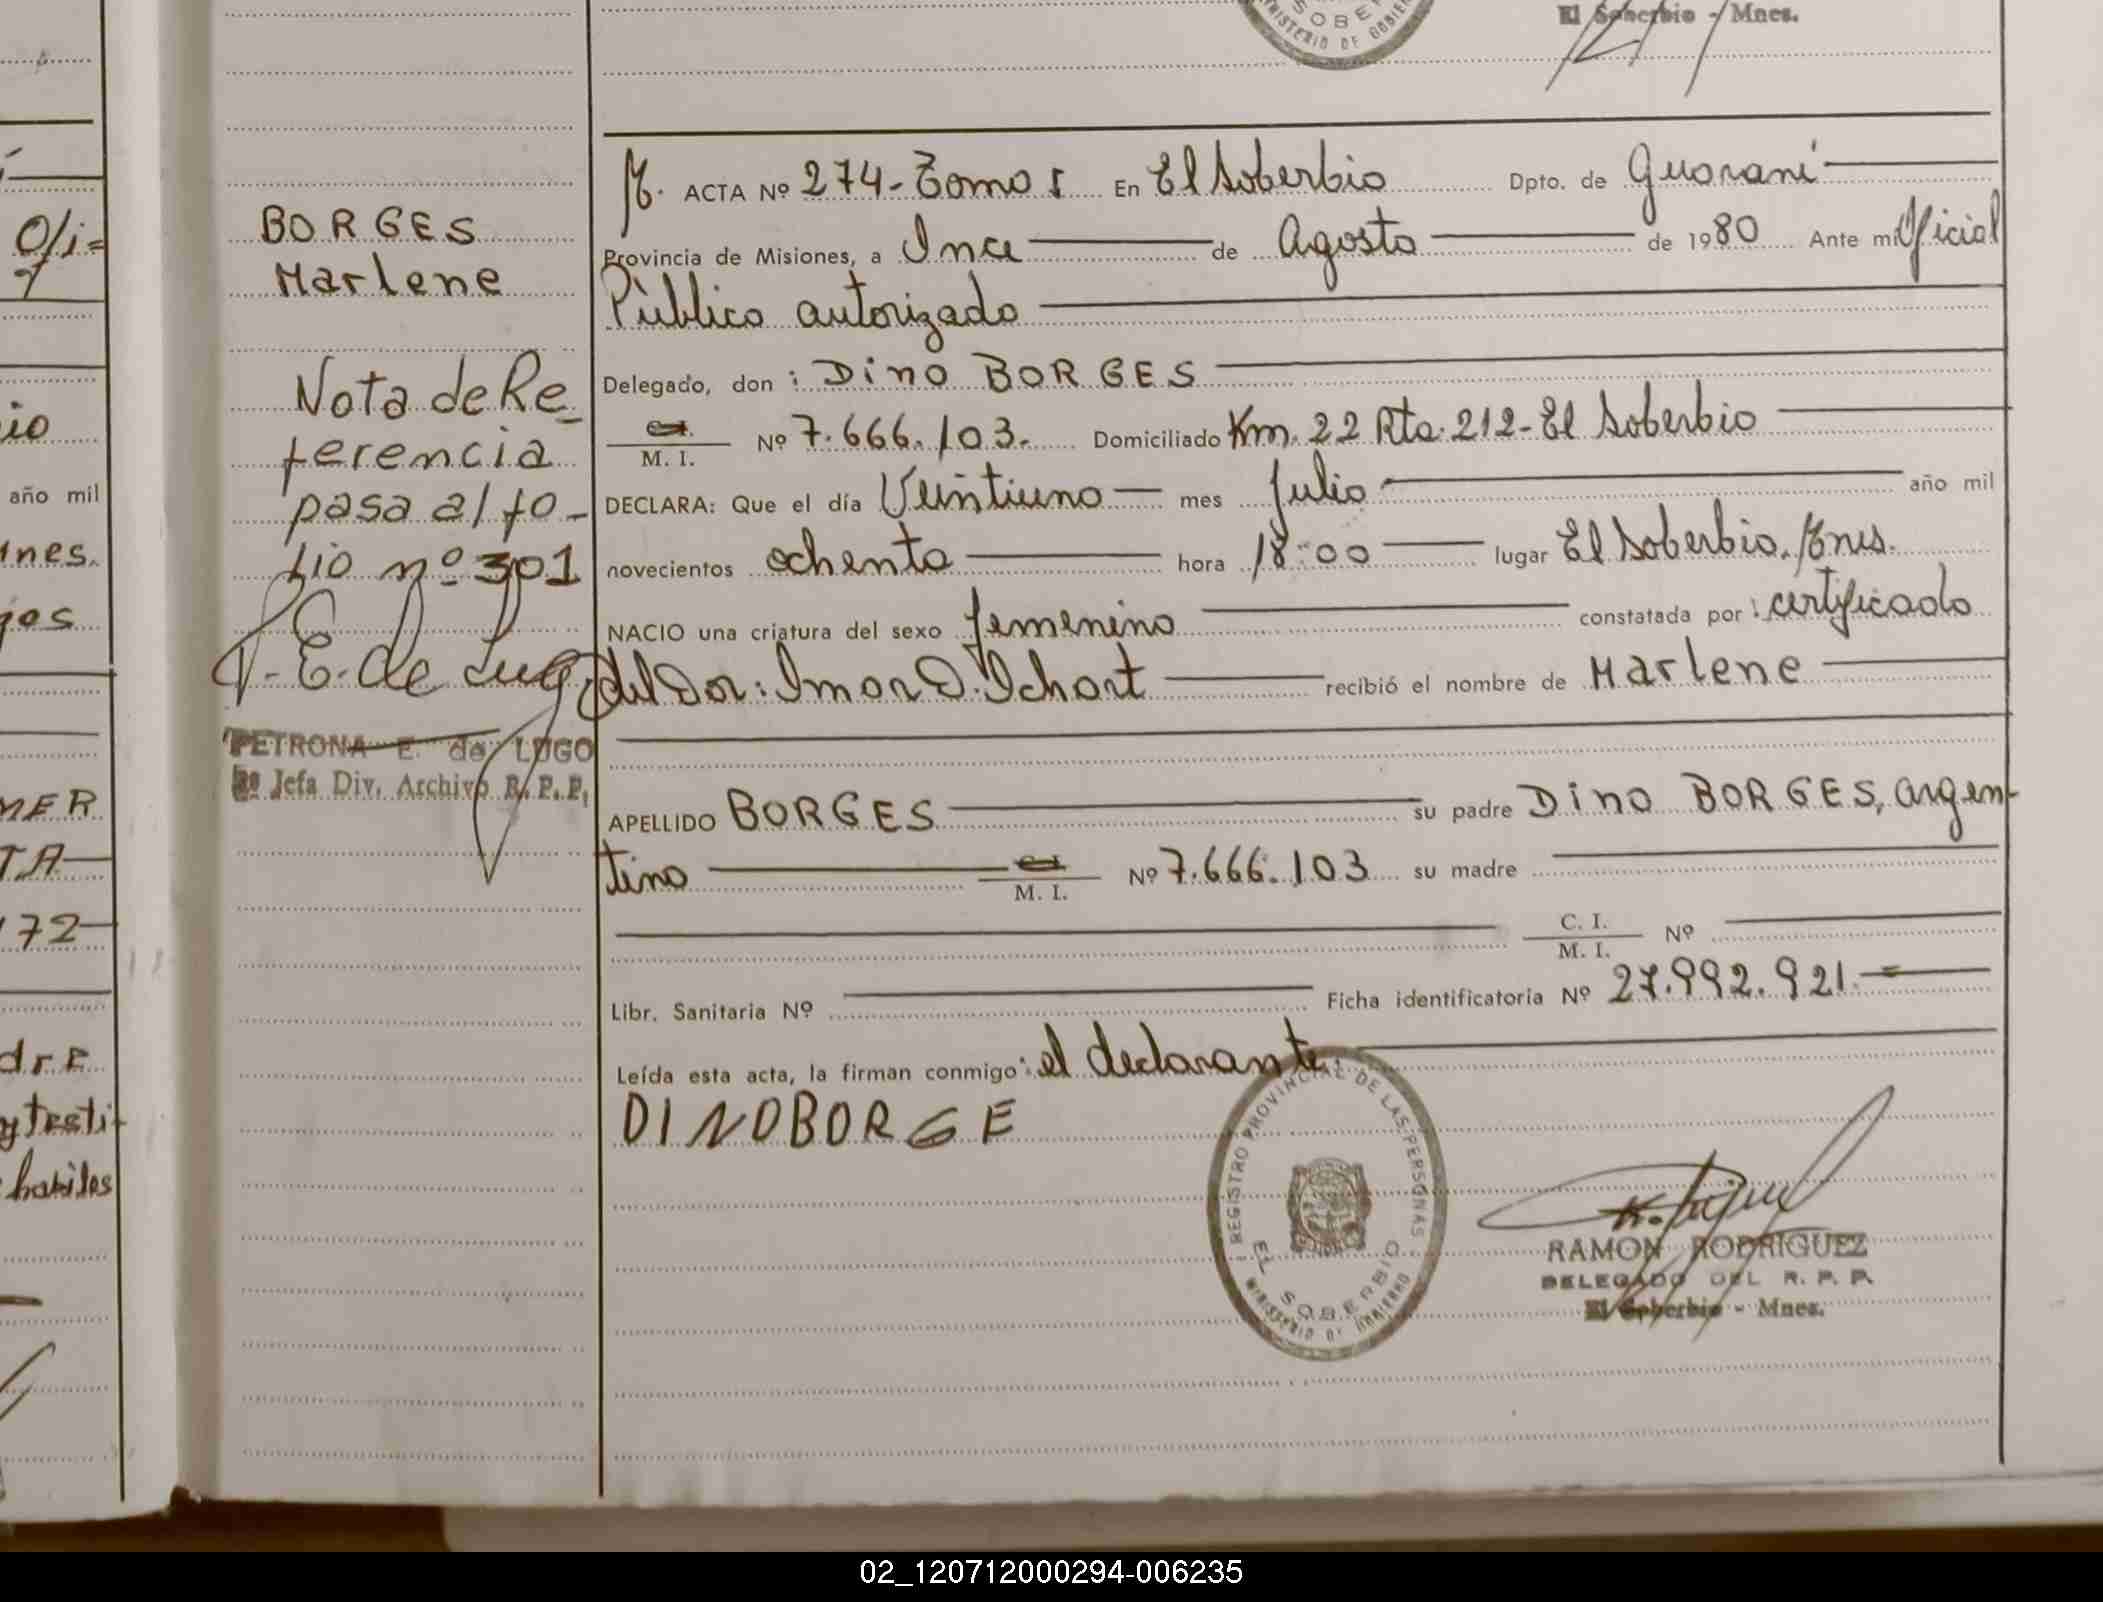 El Soberbio - Mnes.
SOBE
MINISTERIO DE GOBIER
Oli=
io
año mil
nes.
jos
MER
TA
172
dr E
y testi-
habiles
BORGES
Marlene
Nota de Re_
ferencia
pasa al fo_
lio nº 301
P. E. de Lugo
PETRONA E. de LUGO
2º Jefa Div. Archivo R. P. P.
M. ACTA Nº 274-Tomo I En El Soberbio Dpto. de Guarani
Provincia de Misiones, a Once de Agosto de 1980 Ante mi Oficial
Público autorizado
Delegado, don : Dino BORGES
M. I. Nº 7.666.103. Domiciliado Km. 22 Rta. 212-El Soberbio
DECLARA: Que el día Veintiuno mes Julio año mil
novecientos ochenta hora 18:00 lugar El Soberbio, Mnes.
NACIO una criatura del sexo femenino constatada por : certificado
del Dor: Imar D. Ichart recibió el nombre de Marlene
APELLIDO BORGES su padre Dino BORGES, argen-
tino M. I. Nº 7.666.103 su madre
C. I.
M. I. Nº
Libr. Sanitaria Nº Ficha identificatoria Nº 27.992.921.=
Leída esta acta, la firman conmigo : el declarante.
DINO BORGE
REGISTRO PROVINCIAL DE LAS PERSONAS
EL SOBERBIO
MINISTERIO DE GOBIERNO
RAMON RODRIGUEZ
DELEGADO DEL R. P. P.
El Soberbio - Mnes.
02_120712000294-006235